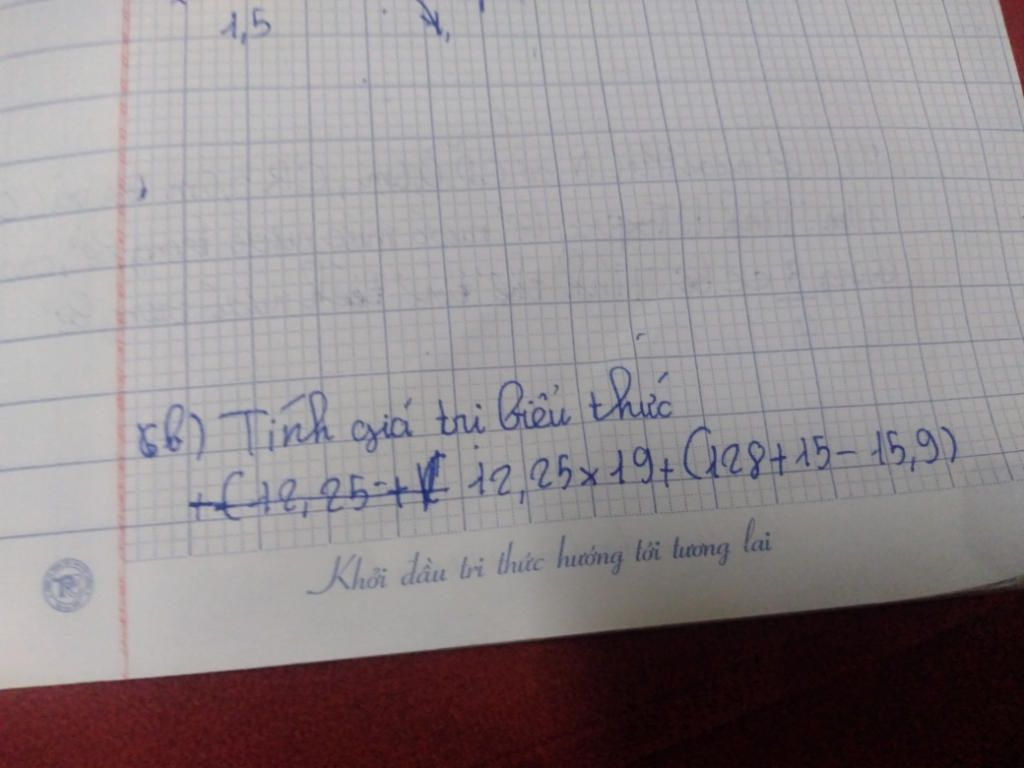 1,5
5b) Tính giá trị biểu thức
12,25 x 19 + (128 + 15 - 15,9)
Khởi đầu tri thức hướng tới tương lai